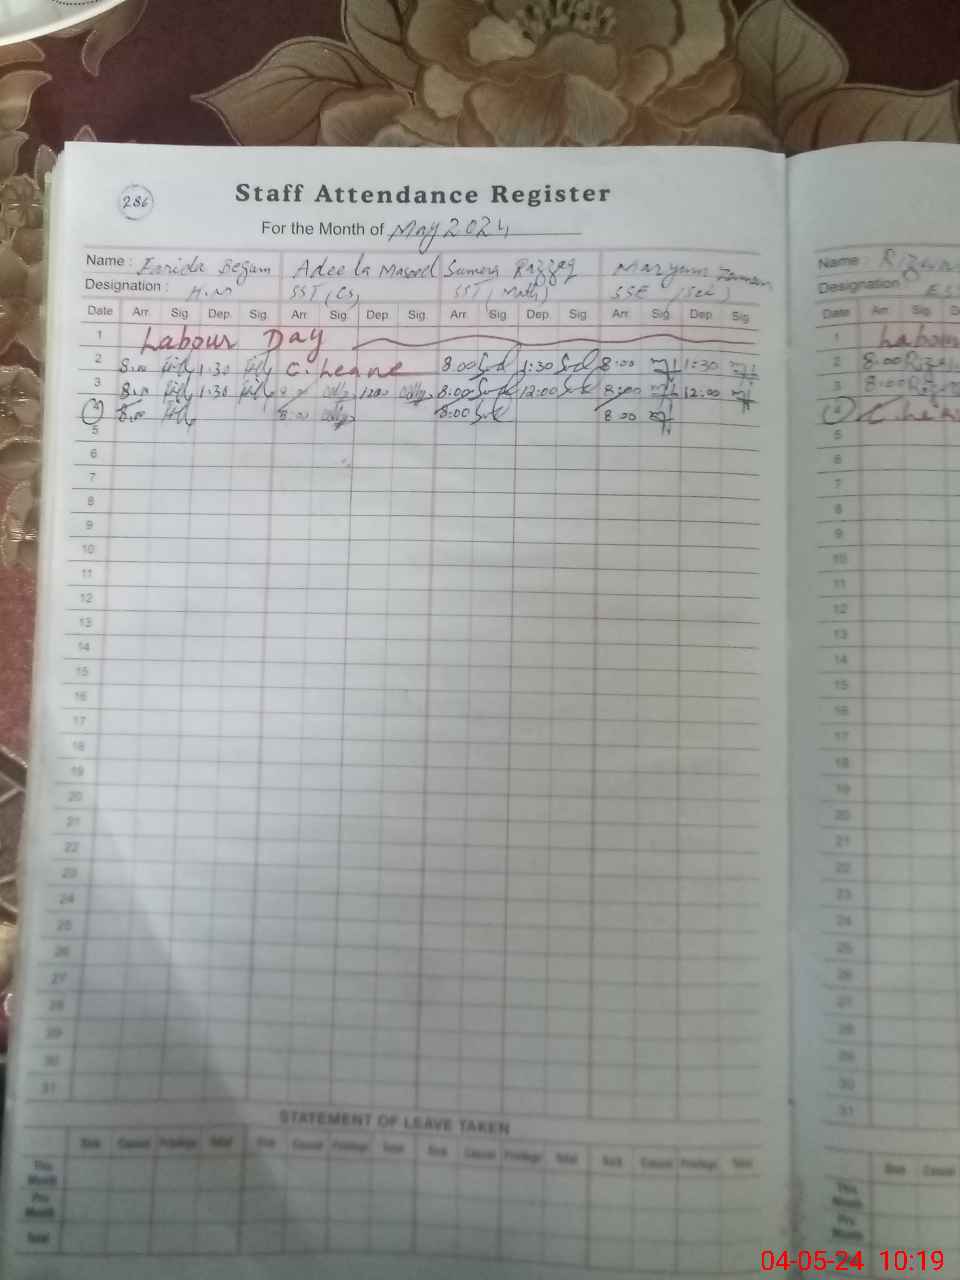 286
Staff Attendance Register
For the Month of May 2024
Name : Farida Begum Adeela Masood Sumera Razzaq Maryum Zaman
Designation : H.M SST (CS) SST (Math) SSE (Sci)
Date Arr. Sig. Dep. Sig. Arr. Sig. Dep. Sig. Arr. Sig. Dep. Sig. Arr. Sig. Dep. Sig.
1 Labour Day
2 8:00 1:30 C. Leave 8:00 1:30 8:00 1:30
3 8:00 1:30 8:00 12:00 8:00 12:00 8:00 12:00
4 8:00 8:00 8:00 8:00
5
6
7
8
9
10
11
12
13
14
15
16
17
18
19
20
21
22
23
24
25
26
27
28
29
30
31
STATEMENT OF LEAVE TAKEN
Sick Casual Privilege Total Sick Casual Privilege Total Sick Casual Privilege Total Sick Casual Privilege Total
This Month
Pre. Month
Total
Name :
Designation
Date Arr. Sig.
1 Labour
2 8:00
3 8:00
4
5
6
7
8
9
10
11
12
13
14
15
16
17
18
19
20
21
22
23
24
25
26
27
28
29
30
31
Sick Casual
This Month
Pre. Month
04-05-24 10:19